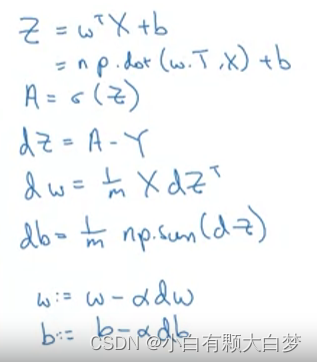 Z = wᵀX + b
= np.dot(w.T, X) + b
A = σ(Z)
dZ = A - Y
dw = 1/m X dZᵀ
db = 1/m np.sum(dZ)
w := w - αdw
b := b - αdb
CSDN @小白有颗大白梦